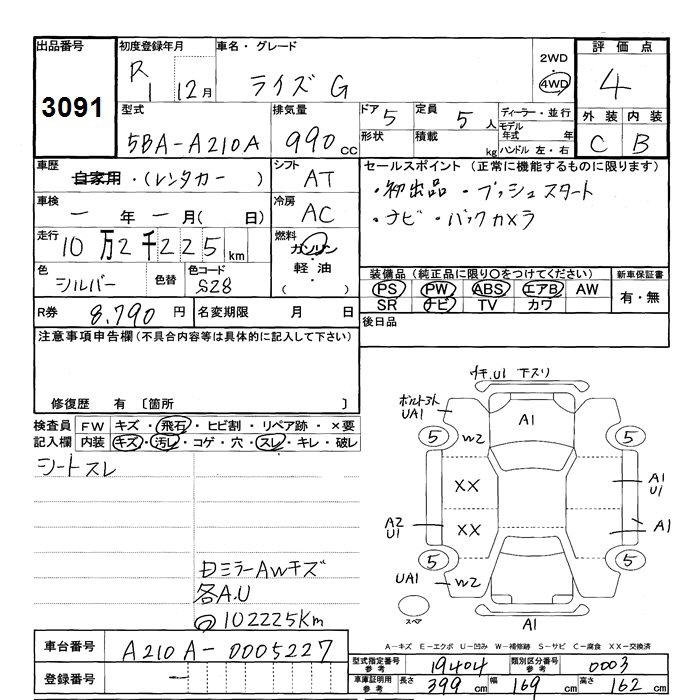 出品番号 初度登録年月 車名・グレード
3091 R 1 12月 ライズ G 2WD 4WD
評価点
4
型式 排気量 ドア 5 定員 5人 ディーラー・並行
5BA-A210A 990cc 形状 積載 kg モデル年式 年
ハンドル 左・右
外装 内装
C B
車歴 自家用・(レンタカー) シフト AT
セールスポイント (正常に機能するものに限ります)
・初出品・プッシュスタート
・ナビ・バックカメラ
車検 ー年ー月(日) 冷房 AC
走行 10万2千225km 燃料 ガソリン
軽油
( )
色 シルバー 色替 色コード S28
装備品 (純正品に限り○をつけてください) 新車保証書
PS PW ABS エアB AW 有・無
SR ナビ TV カワ
R券 8,790円 名変期限 月 日
後日品
注意事項申告欄(不具合内容等は具体的に記入して下さい)
修復歴 有 〔箇所 〕
検査員 FW キズ・飛石・ヒビ割・リペア跡・×要
記入欄 内装 キズ・汚レ・コゲ・穴・スレ・キレ・破レ
シートスレ
キ.U1 下スリ
UA1
A1
5 W2 5
XX A1
U1
A2
U1
XX A1
5 5
UA1 W2
スペア
A1
ミラーAWキズ
各A.U
@102225km
A-キズ E-エクボ U-凹み W-補修跡 S-サビ C-腐食 XX-交換済
車台番号 A210A-0005227
型式指定番号 参考 19404 類別区分番号 参考 0003
登録番号 ー
車庫証明用 参考 長さ 399cm 幅 169cm 高さ 162cm